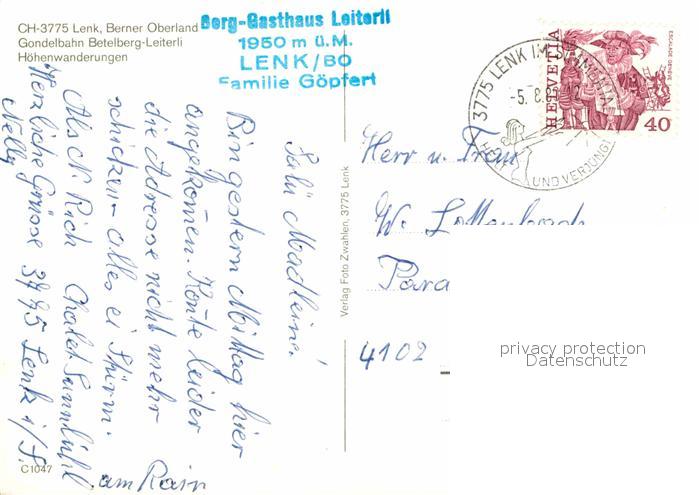 CH-3775 Lenk, Berner Oberland
Gondelbahn Betelberg-Leiterli
Höhenwanderungen
Berg-Gasthaus Leiterli
1950 m ü.M.
LENK/BO
Familie Göpfert
3775 LENK IM SIMMENTAL
-5. 8. 12
HEILT UND VERJÜNGT
HELVETIA
ESCALADE GENÈVE
40
Salü Madleine!
Bin gestern Mittag hier
angekomen. Konte leider
die Adresse nicht mehr
schicken – alles ei Stürm.
Als N. Rich Chalet Sunnbühl
am Rain
Herzliche Grüsse 3775 Lenk i/S.
Nelly
Verlag Foto Zwahlen, 3775 Lenk
Herr u. Frau
W. Lottenbach
Para
4102
privacy protection
Datenschutz
C1047